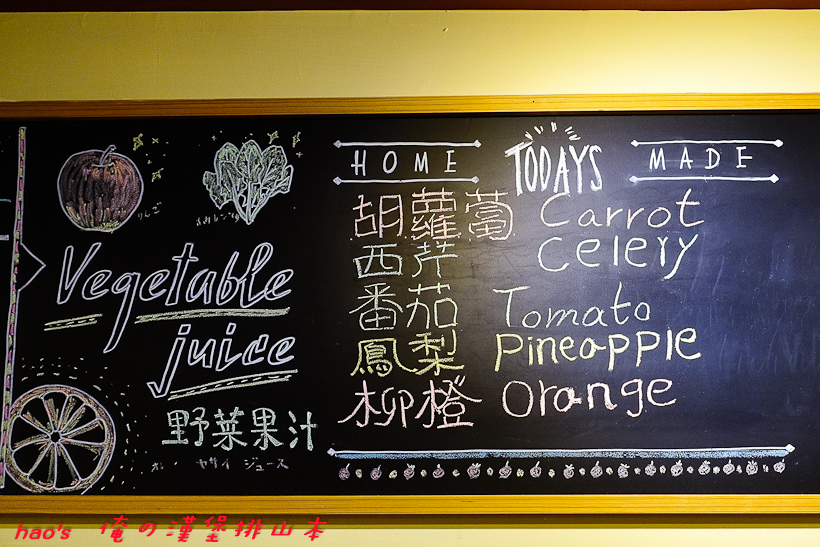 りんご
Vegetable
juice
野菜果汁
ヤサイ ジュース
HOME TODAYS MADE
胡蘿蔔 Carrot
西芹 Celery
番茄 Tomato
鳳梨 Pineapple
柳橙 Orange
hao's 俺の漢堡排山本